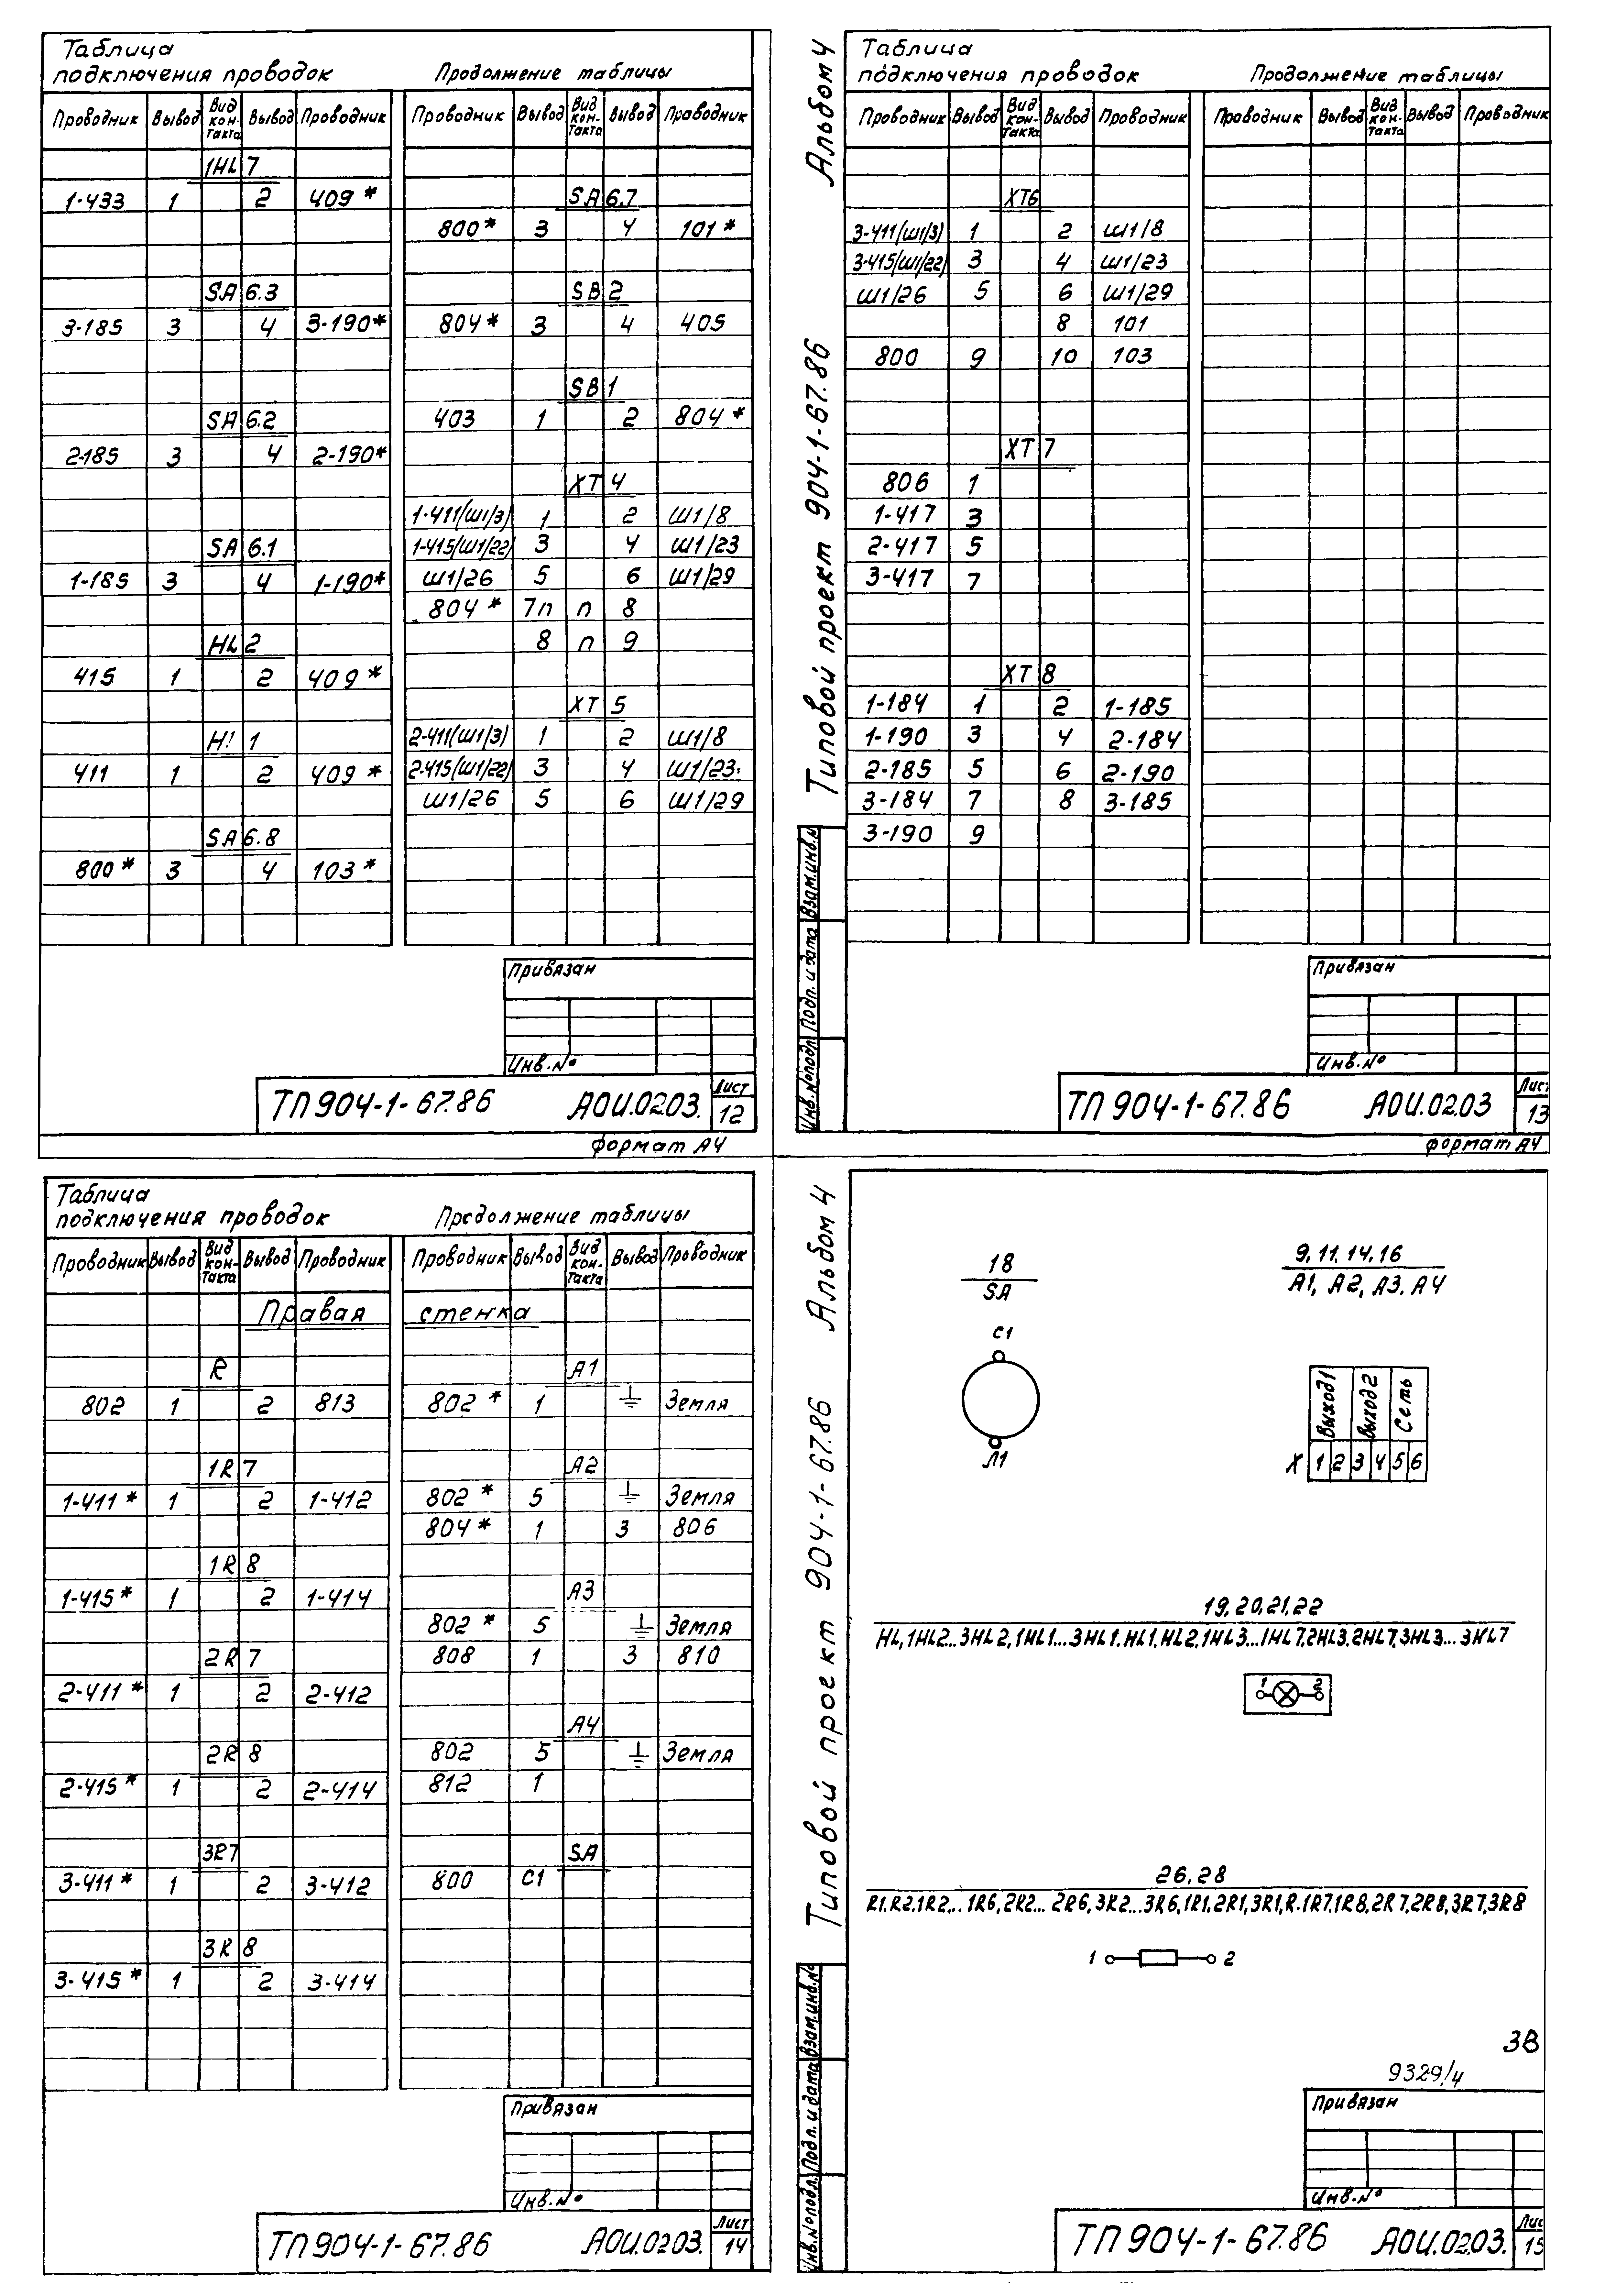 Таблица
подключения проводок
Продолжение таблицы
Проводник Вывод Вид кон-такта Вывод Проводник Проводник Вывод Вид кон-такта Вывод Проводник
1HL 7
1-433 1 2 409 *
SA 6.3
3-185 3 4 3-190*
SA 6.2
2-185 3 4 2-190*
SA 6.1
1-185 3 4 1-190*
HL 2
415 1 2 409 *
1
411 1 2 409 *
SA 6.8
800 * 3 4 103 *
SA 6.7
800 * 3 4 101 *
SB 2
804 * 3 4 405
SB 1
403 1 2 804 *
XT 4
1-411(Ш1/3) 1 2 Ш1/8
1-415(Ш1/22) 3 4 Ш1/23
Ш1/26 5 6 Ш1/29
804 * 7п п 8
8 п 9
XT 5
2-411(Ш1/3) 1 2 Ш1/8
2-415(Ш1/22) 3 4 Ш1/23
Ш1/26 5 6 Ш1/29
Привязан
Инв.№
ТП 904-1-67.86 АОИ.02.03. Лист 12
формат А4
Альбом 4
Типовой проект 904-1-67.86
Взам.инв.№
Подп. и дата
Инв.№подл.
Таблица
подключения проводок
Продолжение таблицы
Проводник Вывод Вид кон-такта Вывод Проводник Проводник Вывод Вид кон-такта Вывод Проводник
XT6
3-411(Ш1/3) 1 2 Ш1/8
3-415(Ш1/22) 3 4 Ш1/23
Ш1/26 5 6 Ш1/29
8 101
800 9 10 103
XT 7
806 1
1-417 3
2-417 5
3-417 7
XT 8
1-184 1 2 1-185
1-190 3 4 2-184
2-185 5 6 2-190
3-184 7 8 3-185
3-190 9
Привязан
Инв.№
ТП 904-1-67.86 АОИ.02.03 Лис 13
формат А4
Таблица
подключения проводок
Продолжение таблицы
Проводник Вывод Вид кон-такта Вывод Проводник Проводник Вывод Вид кон-такта Вывод Проводник
Правая стенка
R
802 1 2 813
1R 7
1-411 * 1 2 1-412
1R 8
1-415 * 1 2 1-414
2R 7
2-411 * 1 2 2-412
2R 8
2-415 * 1 2 2-414
3R7
3-411 * 1 2 3-412
3R 8
3-415 * 1 2 3-414
A1
802 * 1 ⏚ Земля
A2
802 * 5 ⏚ Земля
804 * 1 3 806
A3
802 * 5 ⏚ Земля
808 1 3 810
A4
802 5 ⏚ Земля
812 1
SA
800 C1
Привязан
Инв.№
ТП 904-1-67.86 АОИ.02.03. Лист 14
Альбом 4
Типовой проект 904-1-67.86
Взам.инв.№
Подп. и дата
Инв.№подл.
18
SA
C1
Л1
9, 11, 14, 16
A1, A2, A3, A4
Выход1 Выход2 Сеть
X 1 2 3 4 5 6
19, 20, 21, 22
HL, 1HL2...3HL2, 1HL1...3HL1. HL1. HL2, 1HL3...1HL7, 2HL3, 2HL7, 3HL3...3HL7
1 2
26, 28
R1. R2. 1R2... 1R6, 2R2... 2R6, 3R2...3R6, 1R1. 2R1, 3R1, R. 1R7. 1R8, 2R7, 2R8, 3R7, 3R8
1 2
3В
9329/4
Привязан
Инв.№
ТП 904-1-67.86 АОИ.02.03. Лис 15